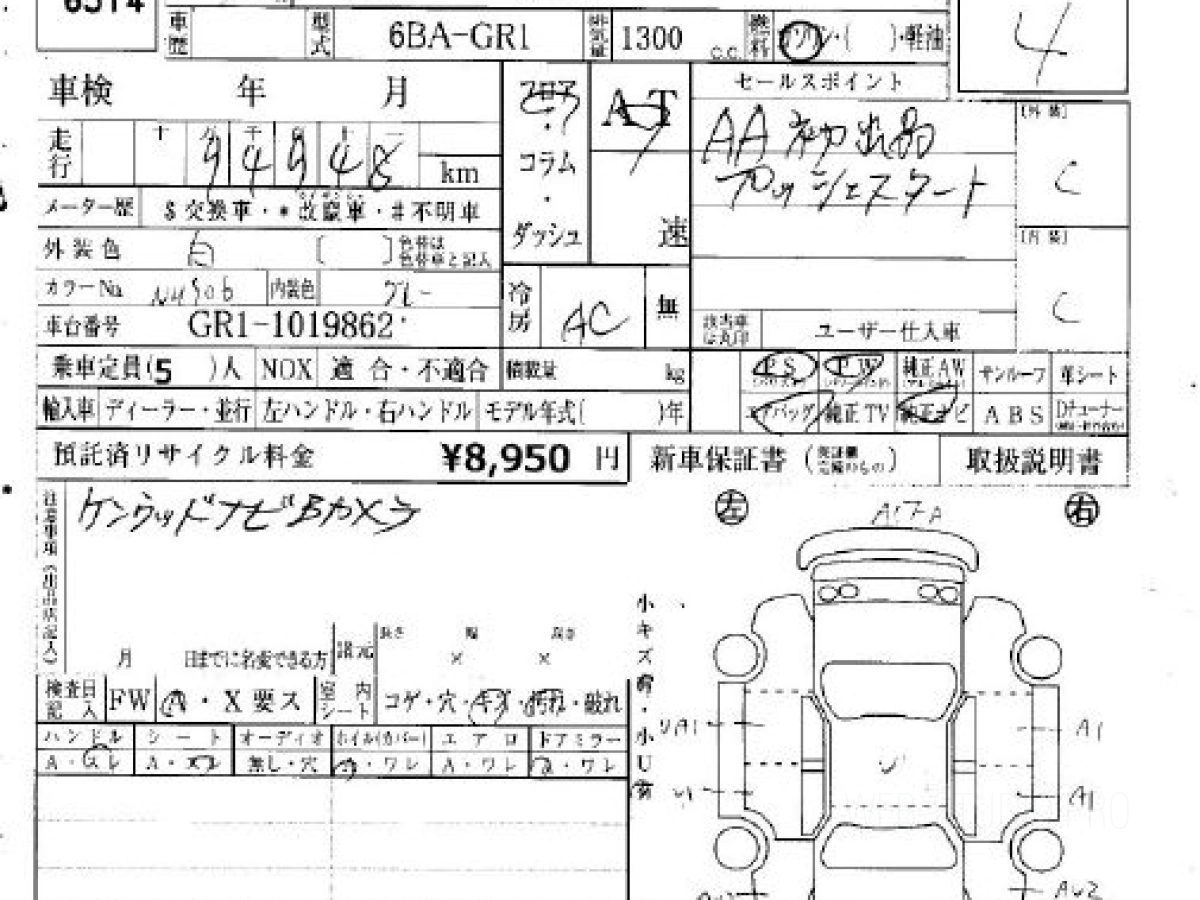 6514
車歴 型式 6BA-GR1 排気量 1300 C.C. 燃料 ガソリン・( )・軽油
4
車検 年 月
フロア・コラム・ダッシュ
AT
速
セールスポイント
AA初出品
プッシュスタート
[外装]
C
[内装]
C
走行 十 万 千 百 十 一
94948 km
メーター歴 $交換車・*改竄車・#不明車
外装色 白 [ ] 色替は色替車と記入
カラーNo. NH906 内装色 グレー
車台番号 GR1-1019862
冷房 AC 無
該当車は丸印 ユーザー仕入車
乗車定員(5 )人 NOX 適合・不適合 積載量 kg
PS PW 純正AW サンルーフ 革シート
輸入車 ディーラー・並行 左ハンドル・右ハンドル モデル年式( )年
エアバッグ 純正TV 純正ナビ ABS Dチューナー
預託済リサイクル料金 ¥8,950 円 新車保証書 取扱説明書
注意事項(出品店記入)
ケンウッドナビ Bカメラ
月 日までに名変できる方 諸元 長さ 幅 高さ
× ×
検査日記入 FW A・X要ス 室内シート コゲ・穴・キズ・汚れ・破れ
ハンドル シート オーディオ ホイル(カバー) エアロ ドアミラー
A・ワレ A・ワレ 無し・穴 A・ワレ A・ワレ A・ワレ
左 右
小キズ有・小U有
A1
A1
AU2